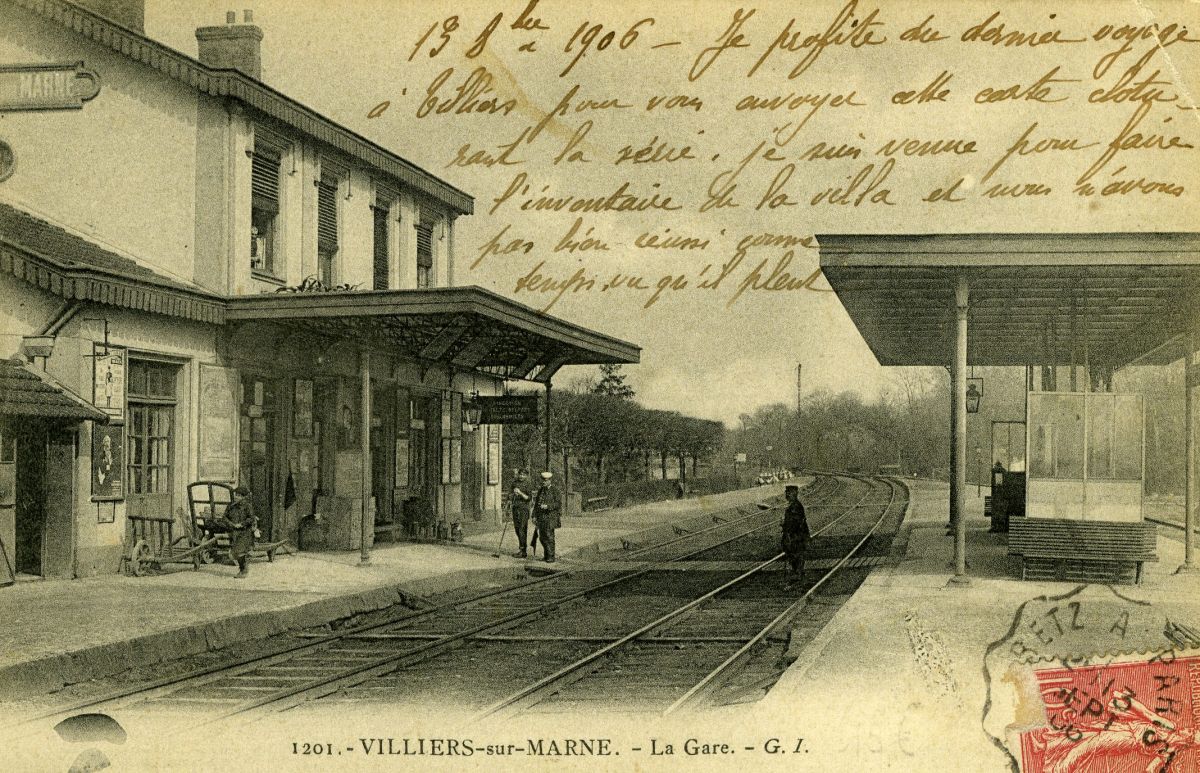 13 8bre 1906 - Je profite du dernier voyage
à Villiers pour vous envoyer cette carte clotu-
rant la série. je suis venue pour faire
l'inventaire de la villa et nous n'avons
pas bien réussi comme
temps, vu qu'il pleut
MARNE
METZ A PARIS
13
SEPT
06
1201. - VILLIERS-sur-MARNE. - La Gare. - G. I.